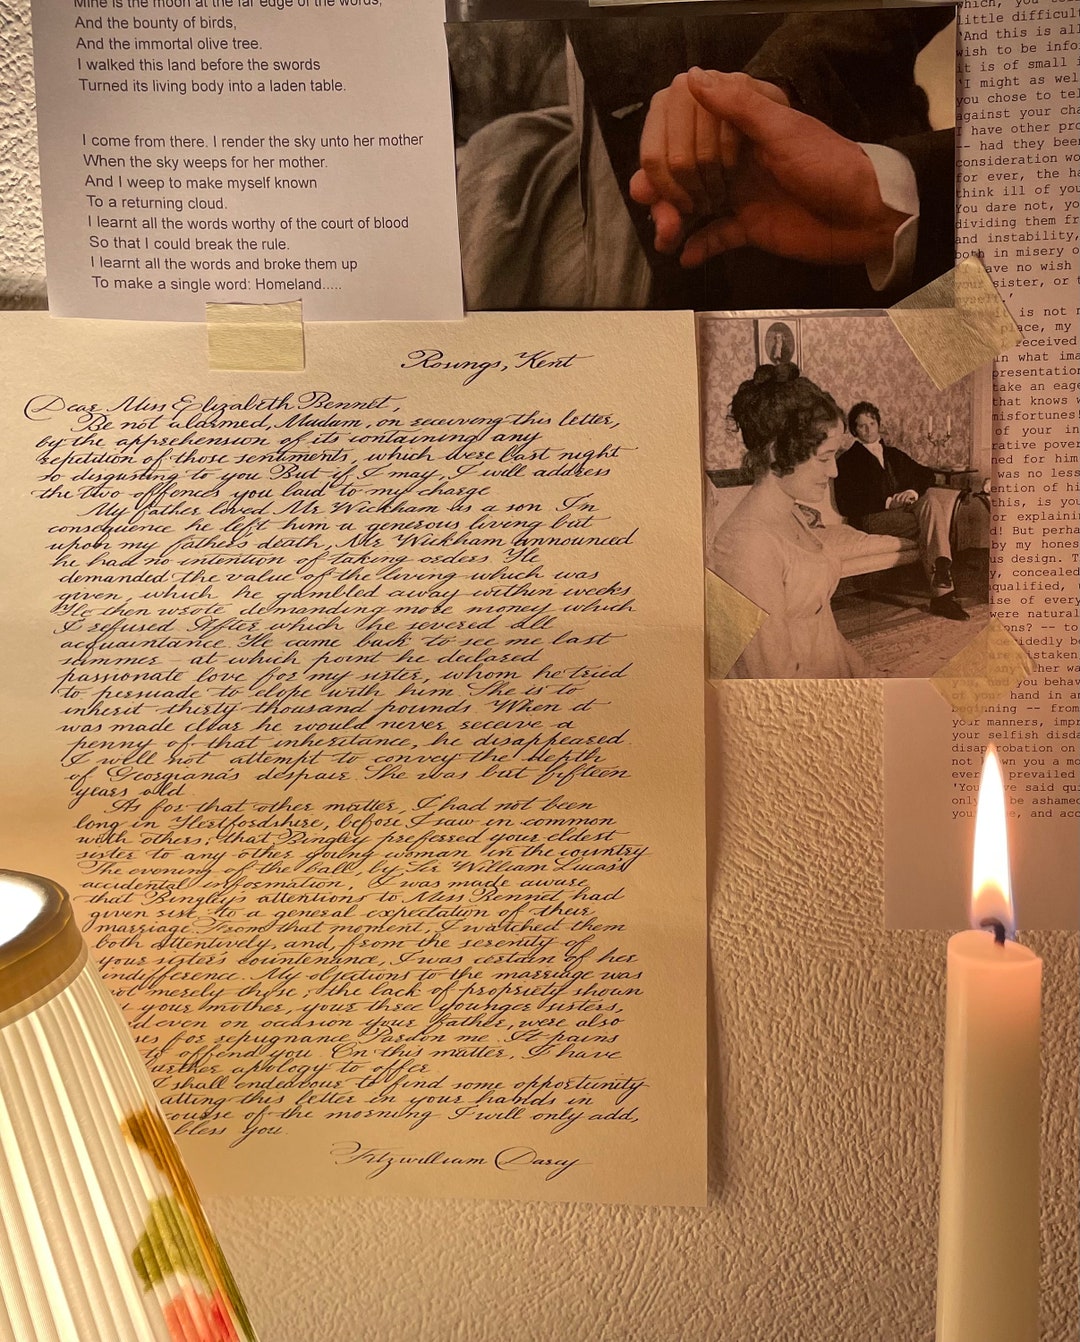 Mine is the moon at the far edge of the words,
And the bounty of birds,
And the immortal olive tree.
I walked this land before the swords
Turned its living body into a laden table.
I come from there. I render the sky unto her mother
When the sky weeps for her mother.
And I weep to make myself known
To a returning cloud.
I learnt all the words worthy of the court of blood
So that I could break the rule.
I learnt all the words and broke them up
To make a single word: Homeland.....
Rosings, Kent
Dear Miss Elizabeth Bennet,
Be not alarmed, Madam, on receiving this letter,
by the apprehension of its containing any
repetition of those sentiments, which were last night
so disgusting to you But if I may, I will address
the two offences you laid to my charge
My father loved Mr Wickham as a son In
consequence he left him a generous living but
upon my father's death, Mr Wickham announced
he had no intention of taking orders. He
demanded the value of the living which was
given, which he gambled away within weeks
He then wrote demanding more money which
I refused After which he severed all
acquaintance. He came back to see me last
summer - at which point he declared
passionate love for my sister, whom he tried
to persuade to elope with him. She is to
inherit thirty thousand pounds When it
was made clear he would never receive a
penny of that inheritance, he disappeared.
I will not attempt to convey the depth
of Georgiana's despair. She was but fifteen
years old.
As for that other matter, I had not been
long in Hertfordshire, before I saw in common
with others, that Bingley preferred your eldest
sister to any other young woman in the country
The evening of the ball, by Sir William Lucas's
accidental information, I was made aware
that Bingley's attentions to Miss Bennet had
given rise to a general expectation of their
marriage. From that moment, I watched them
both attentively, and, from the serenity of
your sister's countenance, I was certain of her
indifference. My objections to the marriage was
not merely those; the lack of propriety shown
your mother, your three younger sisters,
even on occasion your father, were also
for repugnance Pardon me. It pains
to offend you. On this matter, I have
further apology to offer
I shall endeavour to find some opportunity
this letter in your hands in
course of the morning I will only add,
bless you.
Fitzwilliam Darcy
which, you
little difficult
'And this is all
wish to be info
it is of small i
'I might as wel
you chose to tel
against your cha
I have other pro
-- had they been
consideration wo
for ever, the ha
think ill of you
You dare not, yo
dividing them fr
and instability,
both in misery o
have no wish
your sister, or t
myself.'
it is not m
place, my
received
in what ima
presentation
take an eage
that knows w
misfortunes!
of your in
rative pover
ned for him
was no less
ention of hi
this, is you
or explaini
d! But perha
by my hones
us design. T
y, concealed
qualified,
ise of every
were natural
ions? -- to
decidedly be
are mistaken,
any other wa
you, had you behav
of your hand in an
beginning -- from
your manners, impr
your selfish disda
disapprobation on
not known you a mo
ever prevailed
'You have said qui
only be ashamed
your, and acc